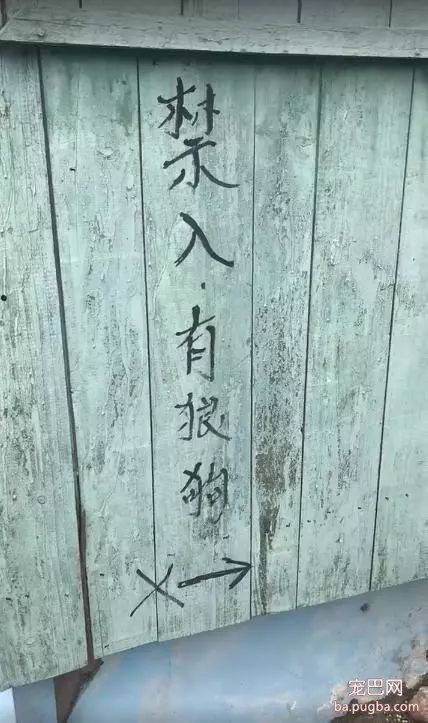 禁入.有狼狗
X→
宠巴网
ba.pugba.com